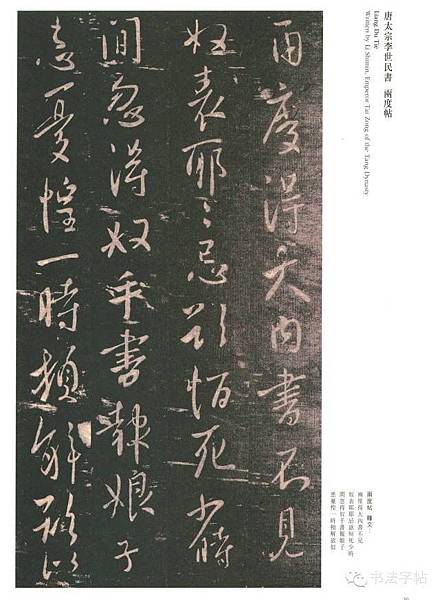 唐太宗李世民書 兩度帖
Liang Du Tie
Written by Li Shimin, Emperor Tai Zong of the Tang Dynasty
兩度得大内書不見
奴表耶々忌欲恒死少時
間忽得奴手書報娘子
患憂惶一時頓解欲似
兩度帖 釋文：
兩度得大內書不見
奴表耶耶忌欲恆死少時
間忽得奴手書報娘子
患憂惶一時頓解欲似
书法字帖